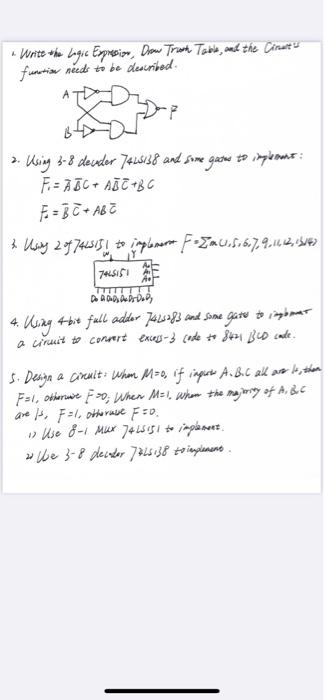 1. Write the Logic Expression, Draw Truth Table, and the Circuit's
function needs to be described.
A
F
B
2. Using 3-8 decoder 74LS138 and some gates to implement:
F₁ = A̅ B̅ C + A B̅ C̅ + B C
F₂ = B̅ C̅ + A B C̅
3. Using 2 of 74LS151 to implement F = Σm(1,5,6,7,9,11,12,13,14)
W Y
74LS151
A₂
A₁
A₀
4. Using 4-bit full adder 74LS283 and some gates to implement
a circuit to convert excess-3 code to 8421 BCD code.
5. Design a circuit: When M=0, if input A.B.C all are 1s, then
F=1, otherwise F=0; When M=1, when the majority of A, B, C
are 1s, F=1, otherwise F=0.
1) Use 8-1 Mux 74LS151 to implement.
2) Use 3-8 decoder 74LS138 to implement.